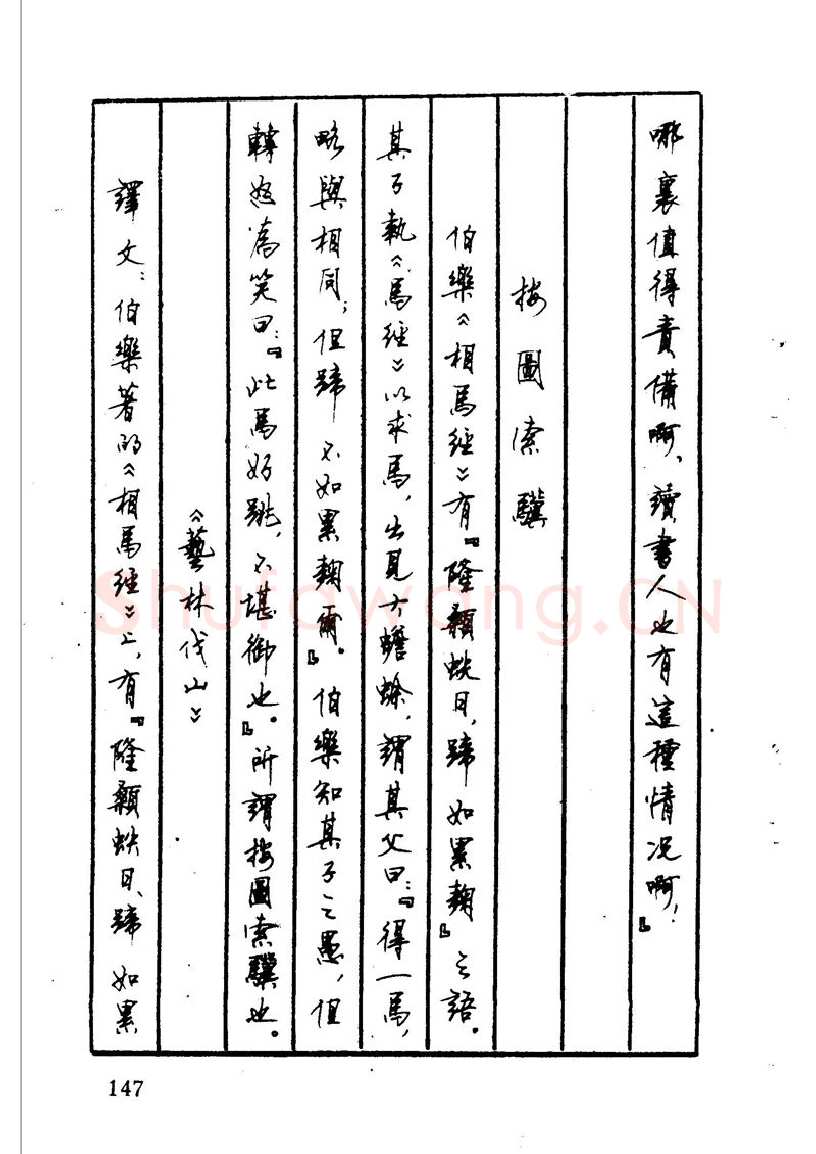 哪裏值得責備啊，讀書人也有這種情况啊！』
按圖索驥
伯樂《相馬經》有『隆顙蚨日，蹄如累麴』之語。
其子執《馬經》以求馬，出見大蟾蜍，謂其父曰：『得一馬，
略與相同；但蹄不如累麴爾。』伯樂知其子之愚，但
轉怒為笑曰：『此馬好跳，不堪御也。』所謂按圖索驥也。
《藝林伐山》
譯文：伯樂著的《相馬經》上，有『隆顙蚨日、蹄如累
Shufawang.CN
147